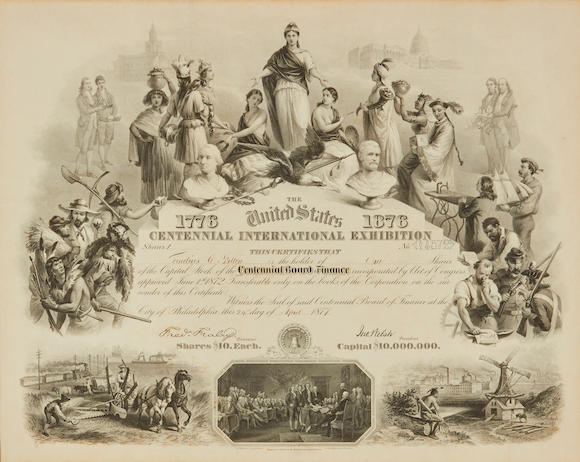 THE
1776 United States 1876
CENTENNIAL INTERNATIONAL EXHIBITION
Shares 1. No.
THIS CERTIFIES THAT
is the holder of One Shares
of the Capital Stock of the Centennial Board of Finance incorporated by Act of Congress
approved June 1st 1872. Transferable only on the books of the Corporation on the sur-
render of this Certificate.
Witness the Seal of said Centennial Board of Finance at the
City of Philadelphia this day of April 1877.
Fredk Fraley Jno Welsh
Treasurer President
Shares $10. Each. Capital $10,000,000.